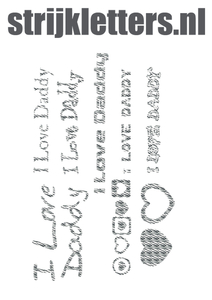 strijkletters.nl
I Love Daddy
I Love Daddy
I Love Daddy
I LOVE DADDY
I LOVE DADDY
I Love
Daddy